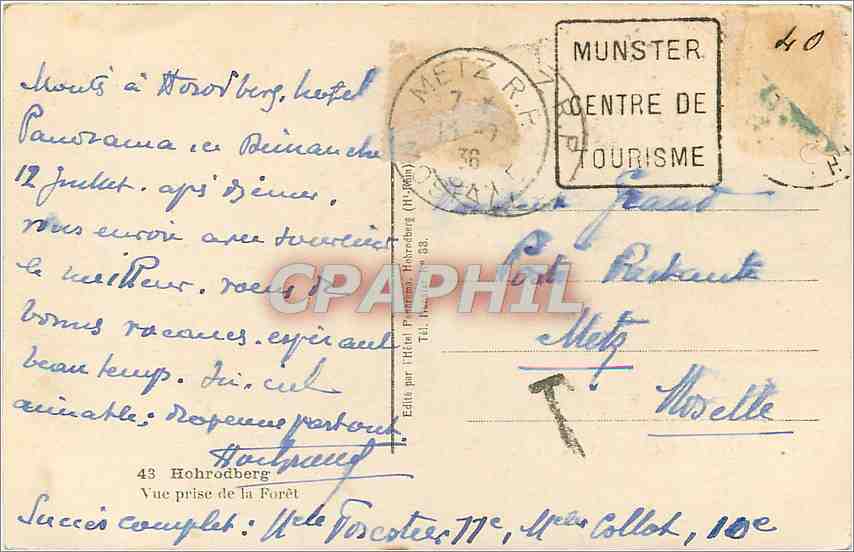 Monté à Horodberg, hotel
Panorama, ce Dimanche
12 Juillet. après déjeuner.
vous envoie avec souvenir
le meilleur. voeux de
bonnes vacances. espérant
beau temps. Ici. ciel
aimable;
43 Hohrodberg
Vue prise de la Forêt
Succès complet: Melle 11e, Melle Collot, 10e
Edité par l'Hôtel Panorama, Hohrodberg (Ht-Rhin)
Tél. Munster No 88.
METZ R.P.
7
36
MOSELLE
R.P.
MUNSTER
CENTRE DE
TOURISME
40
Grand
Poste Restante
Metz
Moselle
T
CPAPHIL